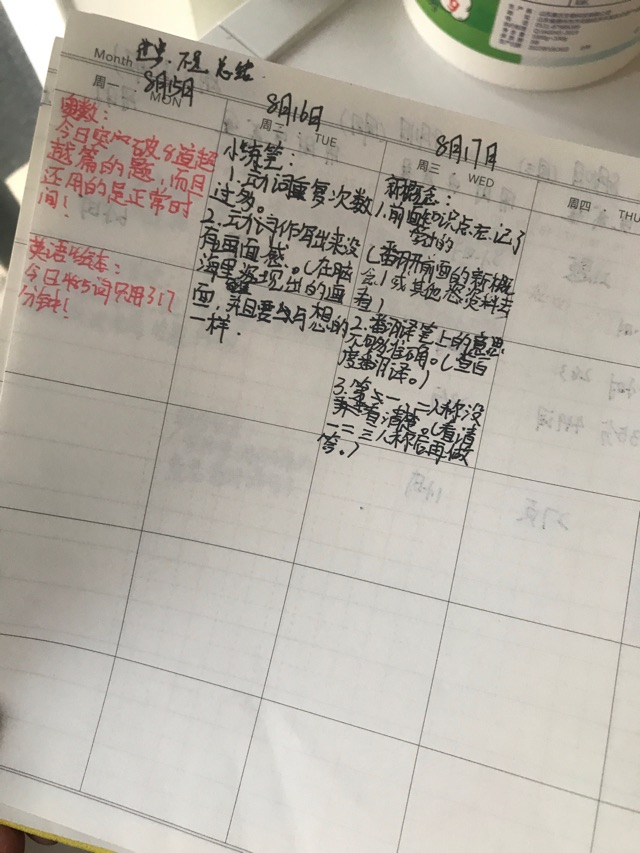 Month 进步.不足 总结.
周一 MON
8月15日
奥数:
今日突破8道超
越篇的题,而且
还用的是正常时
间!
英语绘本:
今日
分钟!
周二 TUE
8月16日
小练笔:
1.动词重复次数
过多。
2.动作词作写出来没
有画面感。(在脑
海里要浮现出的画
面,并且要与想的
一样.
周三 WED
8月17日
新概念:
1.前面知识点忘记了
(翻开前面的新概
念1或其他资料去
看)
2.翻译笔上的意思
不够准确。(查百
度翻译。)
3.第一、二人称没
看清楚。(看清
一二三人称后再做
答。)
周四 THU